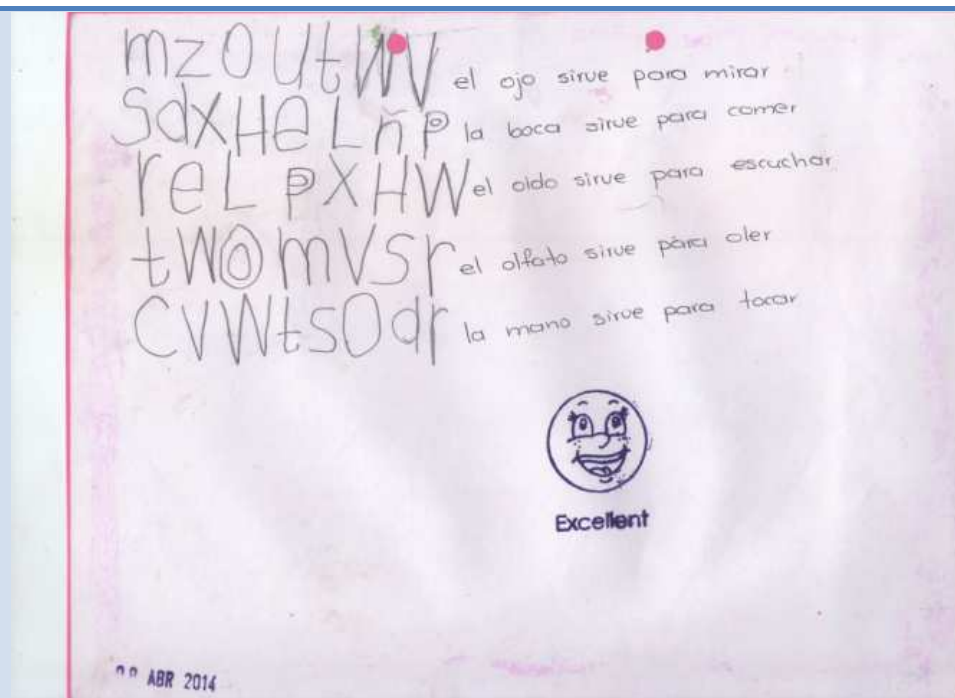 mzOUtWV el ojo sirve para mirar
SdXHeLñP la boca sirve para comer
reLPXHW el oido sirve para escuchar
tWOmVSr el olfato sirve para oler
CVWtsOdr la mano sirve para tocar
Excellent
ABR 2014